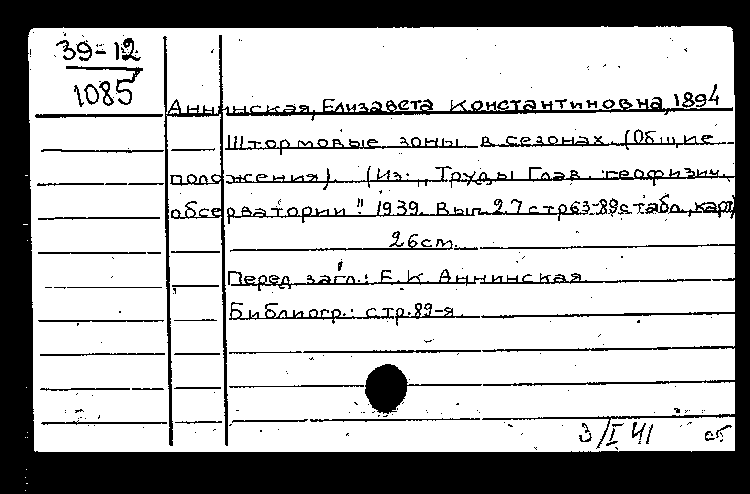 39-12
1085
Аннинская, Елизавета Константиновна, 1894
Штормовые зоны в сезонах. (Общие
положения). (Из: „Труды Глав. геофизич.
обсерватории". 1939. Вып. 27 стр 63-89 с табл., карт)
26 cm.
Перед загл.: Е. К. Аннинская.
Библиогр.: стр. 89-я.
3/I 41 об